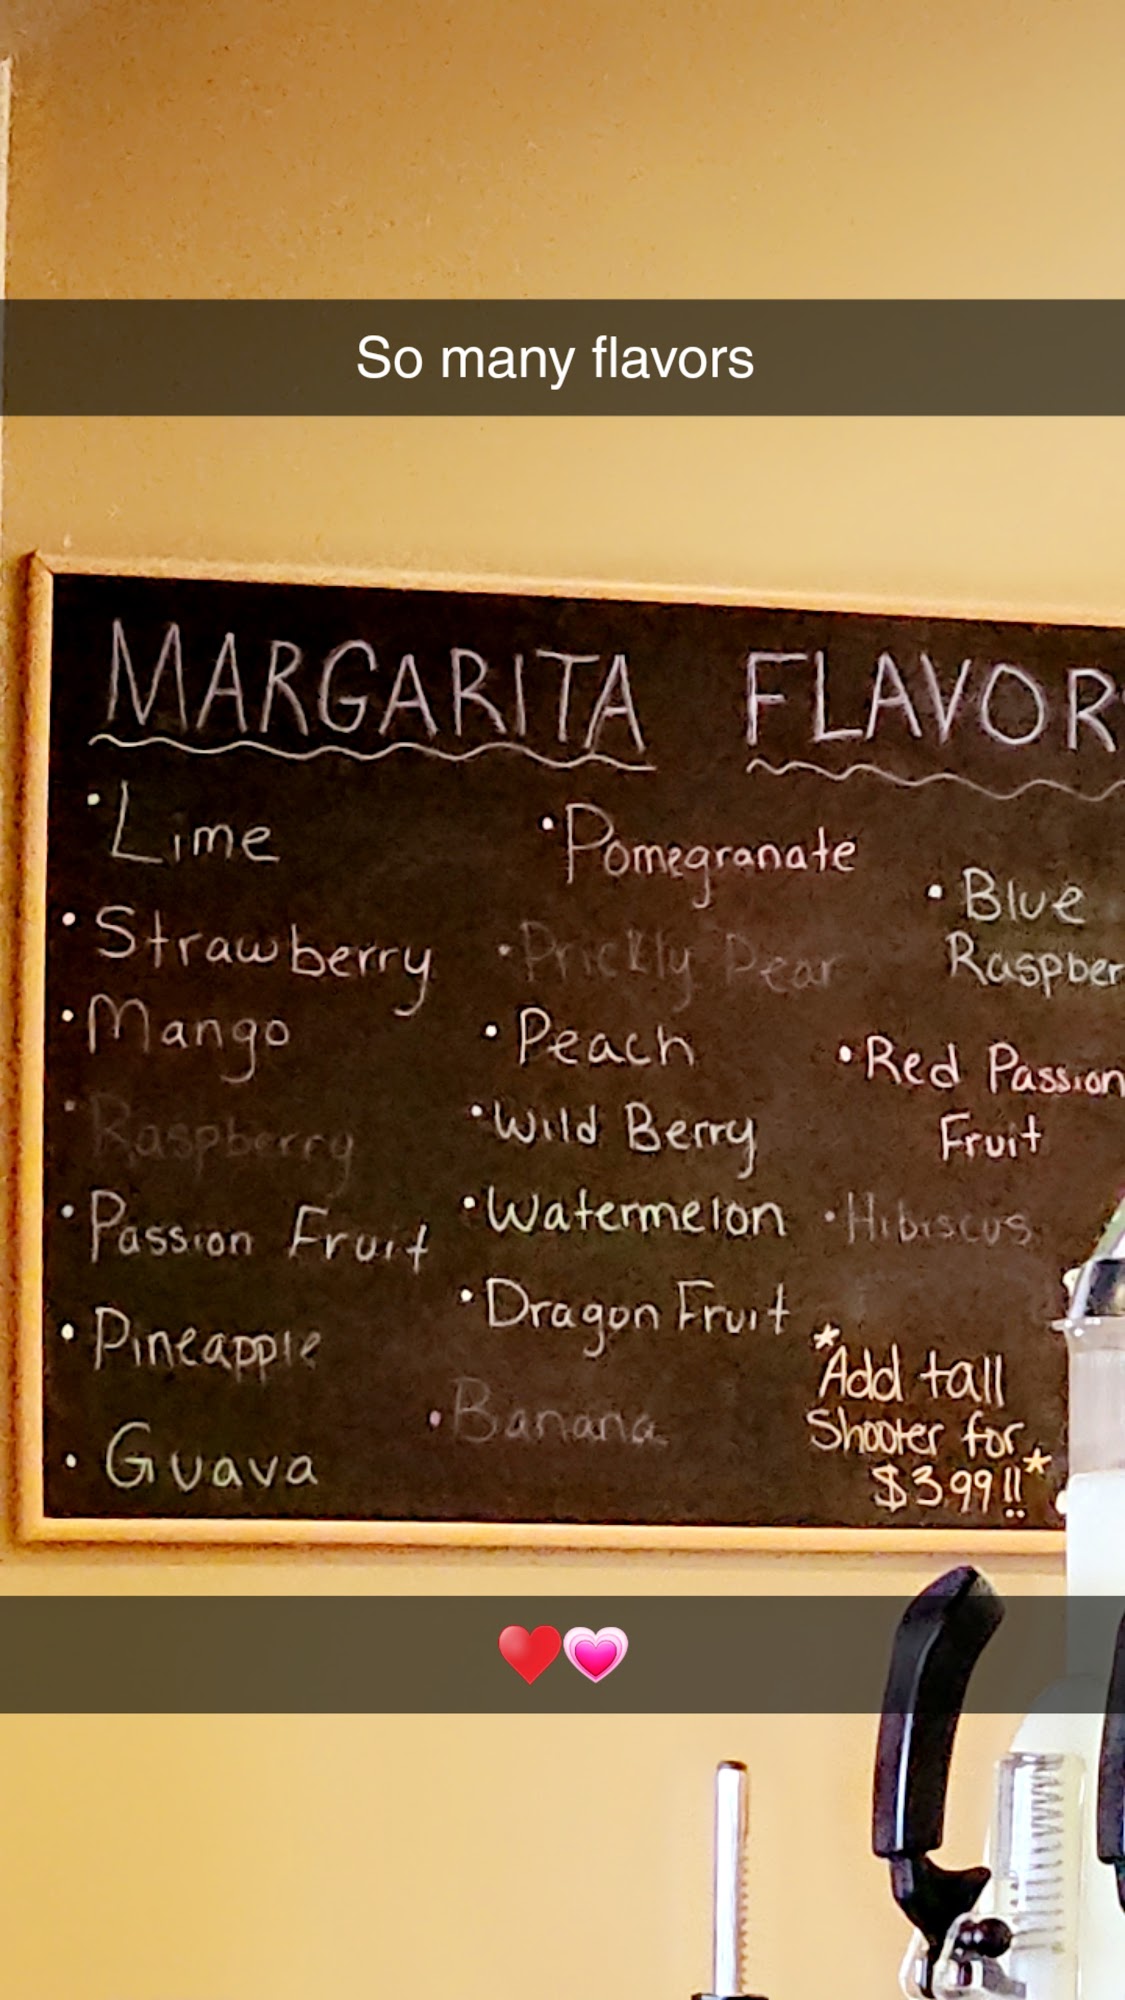 So many flavors
MARGARITA FLAVOR
• Lime
• Strawberry
• Mango
• Raspberry
• Passion Fruit
• Pineapple
• Guava
• Pomegranate
• Prickly Pear
• Peach
• Wild Berry
• Watermelon
• Dragon Fruit
• Banana
• Blue
Raspber
• Red Passion
Fruit
• Hibiscus
*Add tall
Shooter for
$3.99!!*
♥️💗